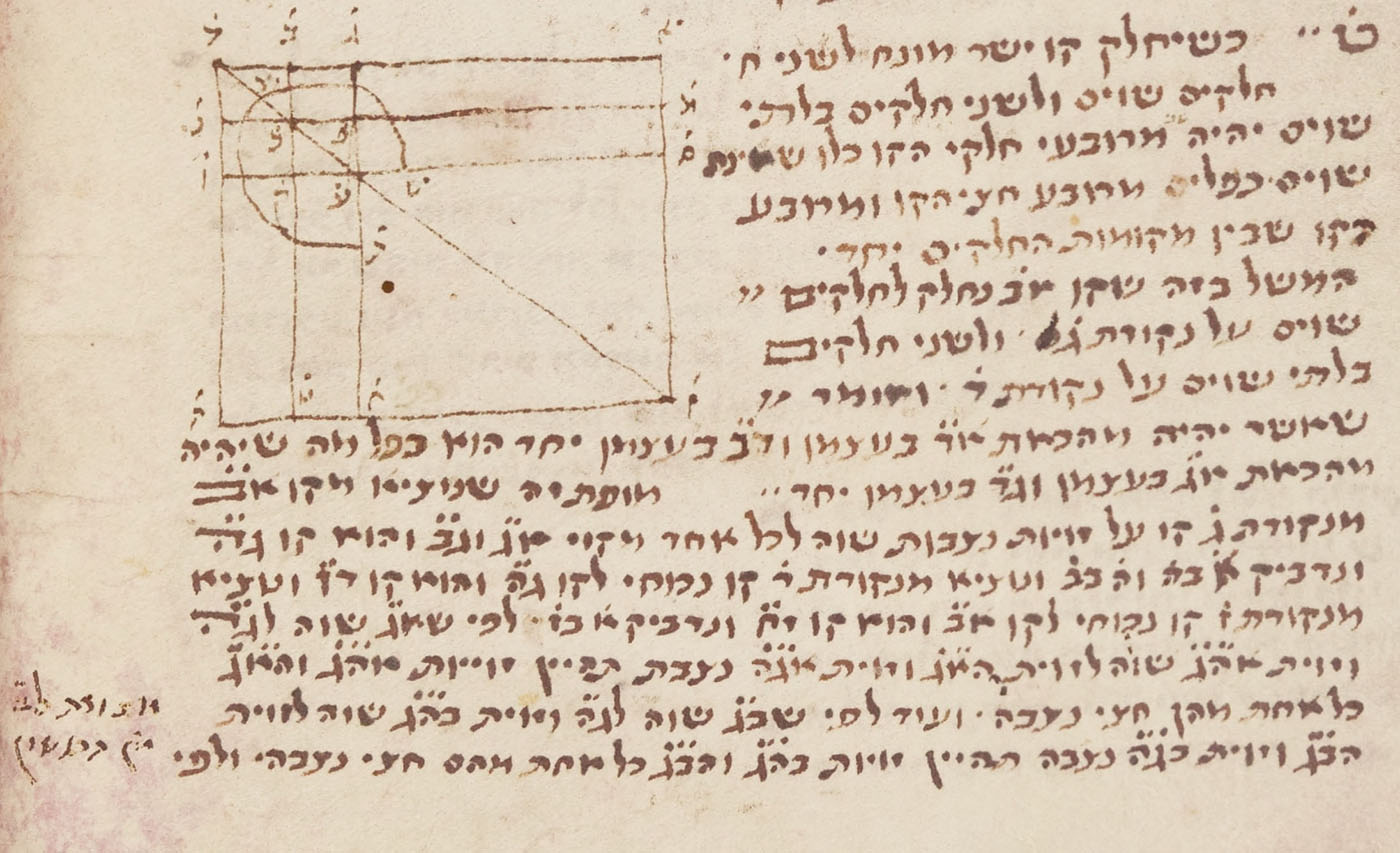 ט֗ ״ כשיחלק קו ישר מונח לשני ח׳
חלקים שוים ולשני חלקים בלתי
שוים יהיה מרובעי חלקי הקו כלו שאינם
שוים כפלים מרובע חצי הקו ומרובע
הקו שבין מקומות החלקים יחד׳
המשל בזה שקו א֗ב֗ נחלק לחלקים ״
שוים על נקודת ג֗ ולשני חלקים
בלתי שוים על נקודת ד֗ ואומר ״
שאשר יהיה מהכאת א֗ד֗ בעצמו וד֗ב֗ בעצמו יחד הוא כפל מה שיהיה
מהכאת א֗ג֗ בעצמו וג֗ד֗ בעצמו יחד ״ מופת זה שנוציא מקו א֗ב֗
מנקודת ג֗ קו על זויות נצבות שוה לכל אחד מקוי א֗ג֗ וג֗ב֗ והוא קו ג֗ה֗
ונדביק א֗ בה֗ וה֗ בב֗ ונוציא מנקודת ד֗ קו נכוחי לקו ג֗ה֗ והוא קו ד֗ז֗ ונוציא
מנקודת ז֗ קו נכוחי לקו א֗ב֗ והוא קו ז֗ח֗ ונדביק א֗ בז֗ ׳ לפי שא֗ג֗ שוה לג֗ה֗
וזוית א֗ה֗ג֗ שוה לזוית ה֗א֗ג֗ וזוית א֗ג֗ה֗ נצבת תהיין זוייות א֗ה֗ג֗ וה֗א֗ג֗
כל אחת מהן חצי נצבה ׳ ועוד לפי שב֗ג֗ שוה לג֗ה֗ וזוית ב֗ה֗ג֗ שוה לזוית
ה֗ב֗ג֗ וזוית ב֗ג֗ה֗ נצבה תהיין זויות ב֗ה֗ג֗ וה֗ב֗ג֗ כל אחת מהם חצי נצבה׳ ולפי